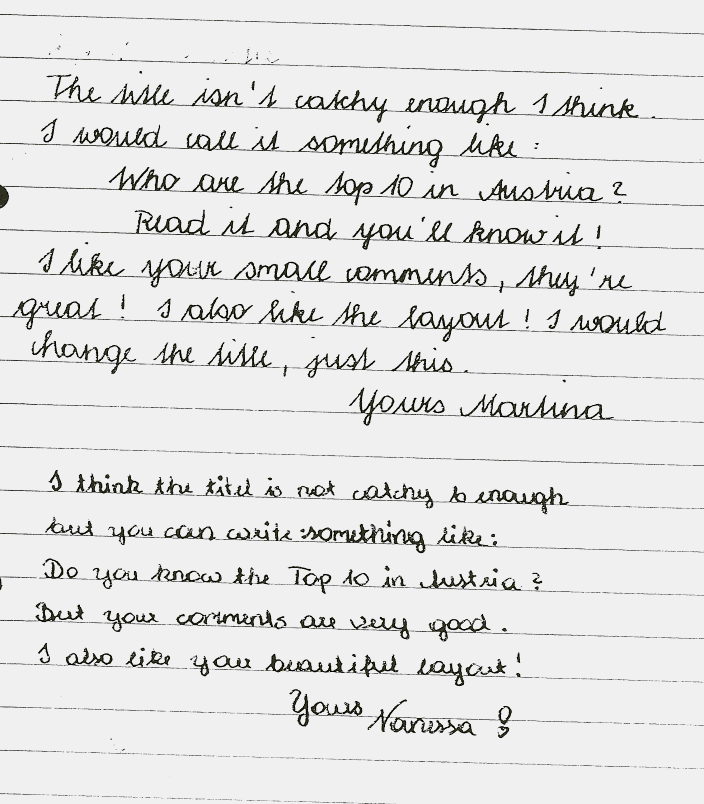 The title isn't catchy enough I think.
I would call it something like:
Who are the top 10 in Austria?
Read it and you'll know it!
I like your small comments, they're
great! I also like the layout! I would
change the title, just this.
Yours Martina
I think the titel is not catchy enough
but you can write something like:
Do you know the Top 10 in Austria?
But your comments are very good.
I also like your beautiful layout!
Yours Vanessa